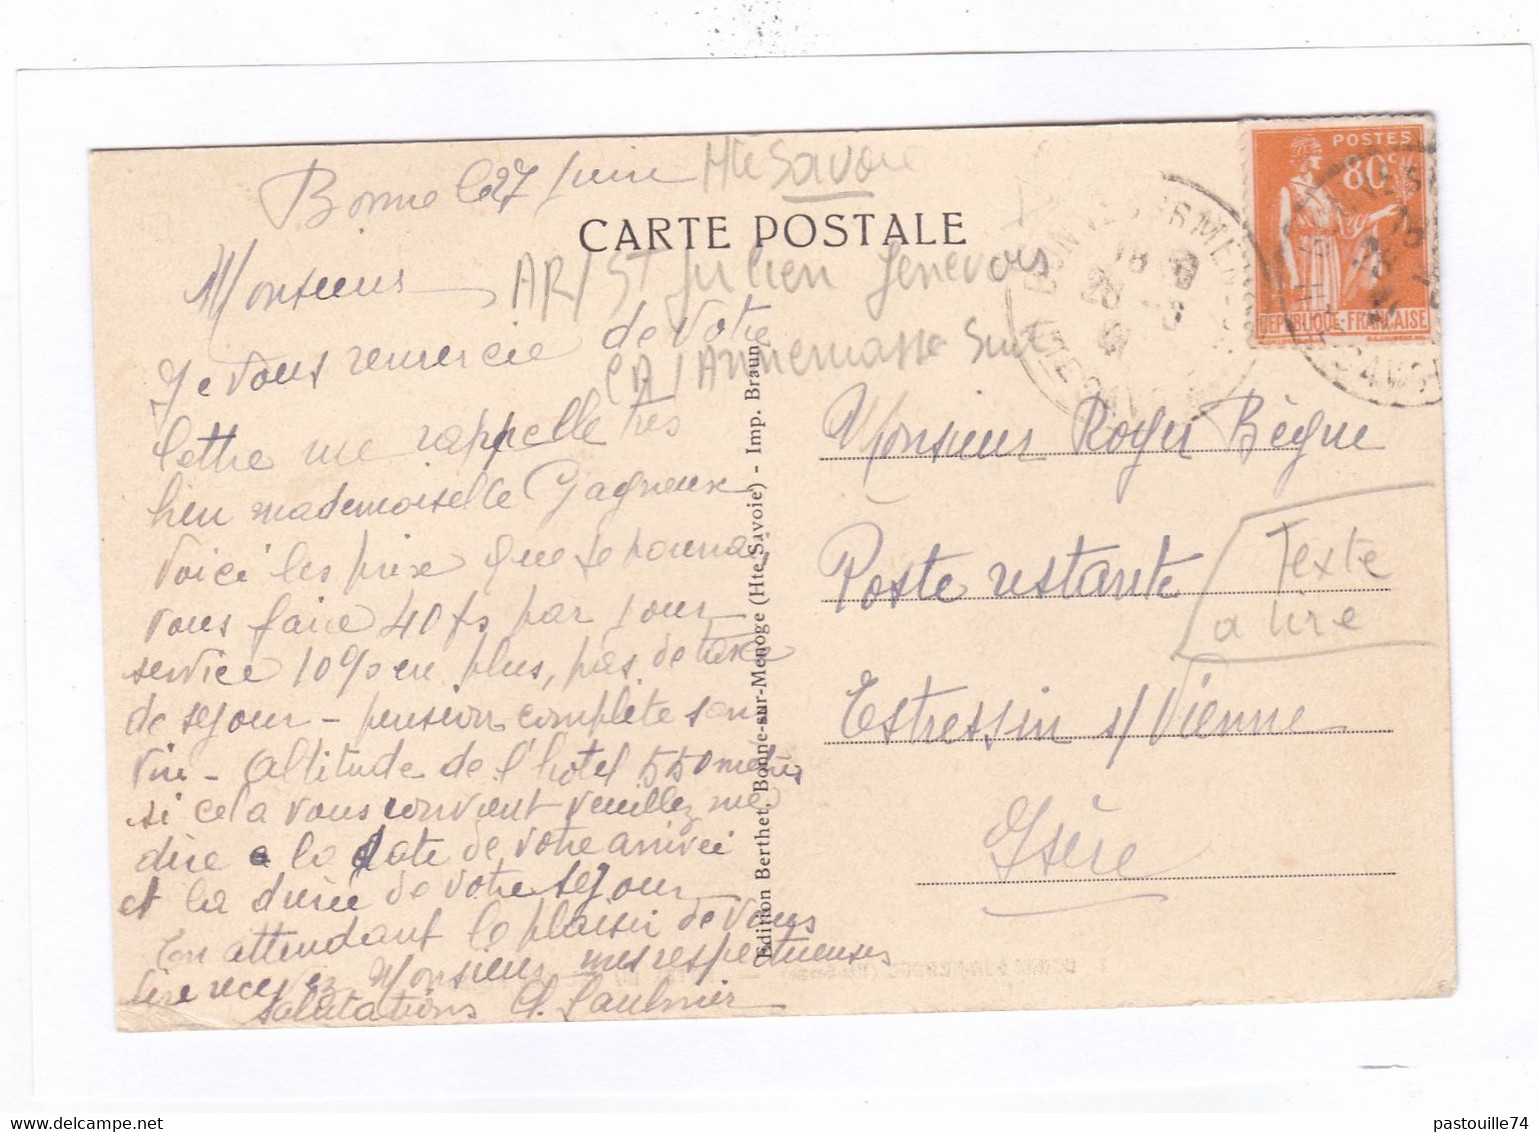 Bonne le 27 Juin Hte Savoie
CARTE POSTALE
POSTES
80c
REPUBLIQUE-FRANCAISE
AR/St Julien Genevois
CA/Annemasse Sud
Monsieur
Je vous remercie de votre
lettre me rappelle très
bien mademoiselle Gagneux
voici les prix que je pourrai
vous faire 40 fs par jour
service 10% en plus, pas de taxe
de séjour - pension complète sans
vin - Altitude de l'hotel 550 mètres
si cela vous convient veuillez me
dire la date de votre arrivée
et la durée de votre séjour
En attendant le plaisir de vous
lire recevez Monsieur mes respectueuses
salutations A. Saulnier
Edition Berthet, Bonne-sur-Menoge (Hte Savoie) - Imp. Braun
Monsieur Roger Bègue
Poste restante
Estressin s/ Vienne
Isère
Texte
a lire
pastouille74